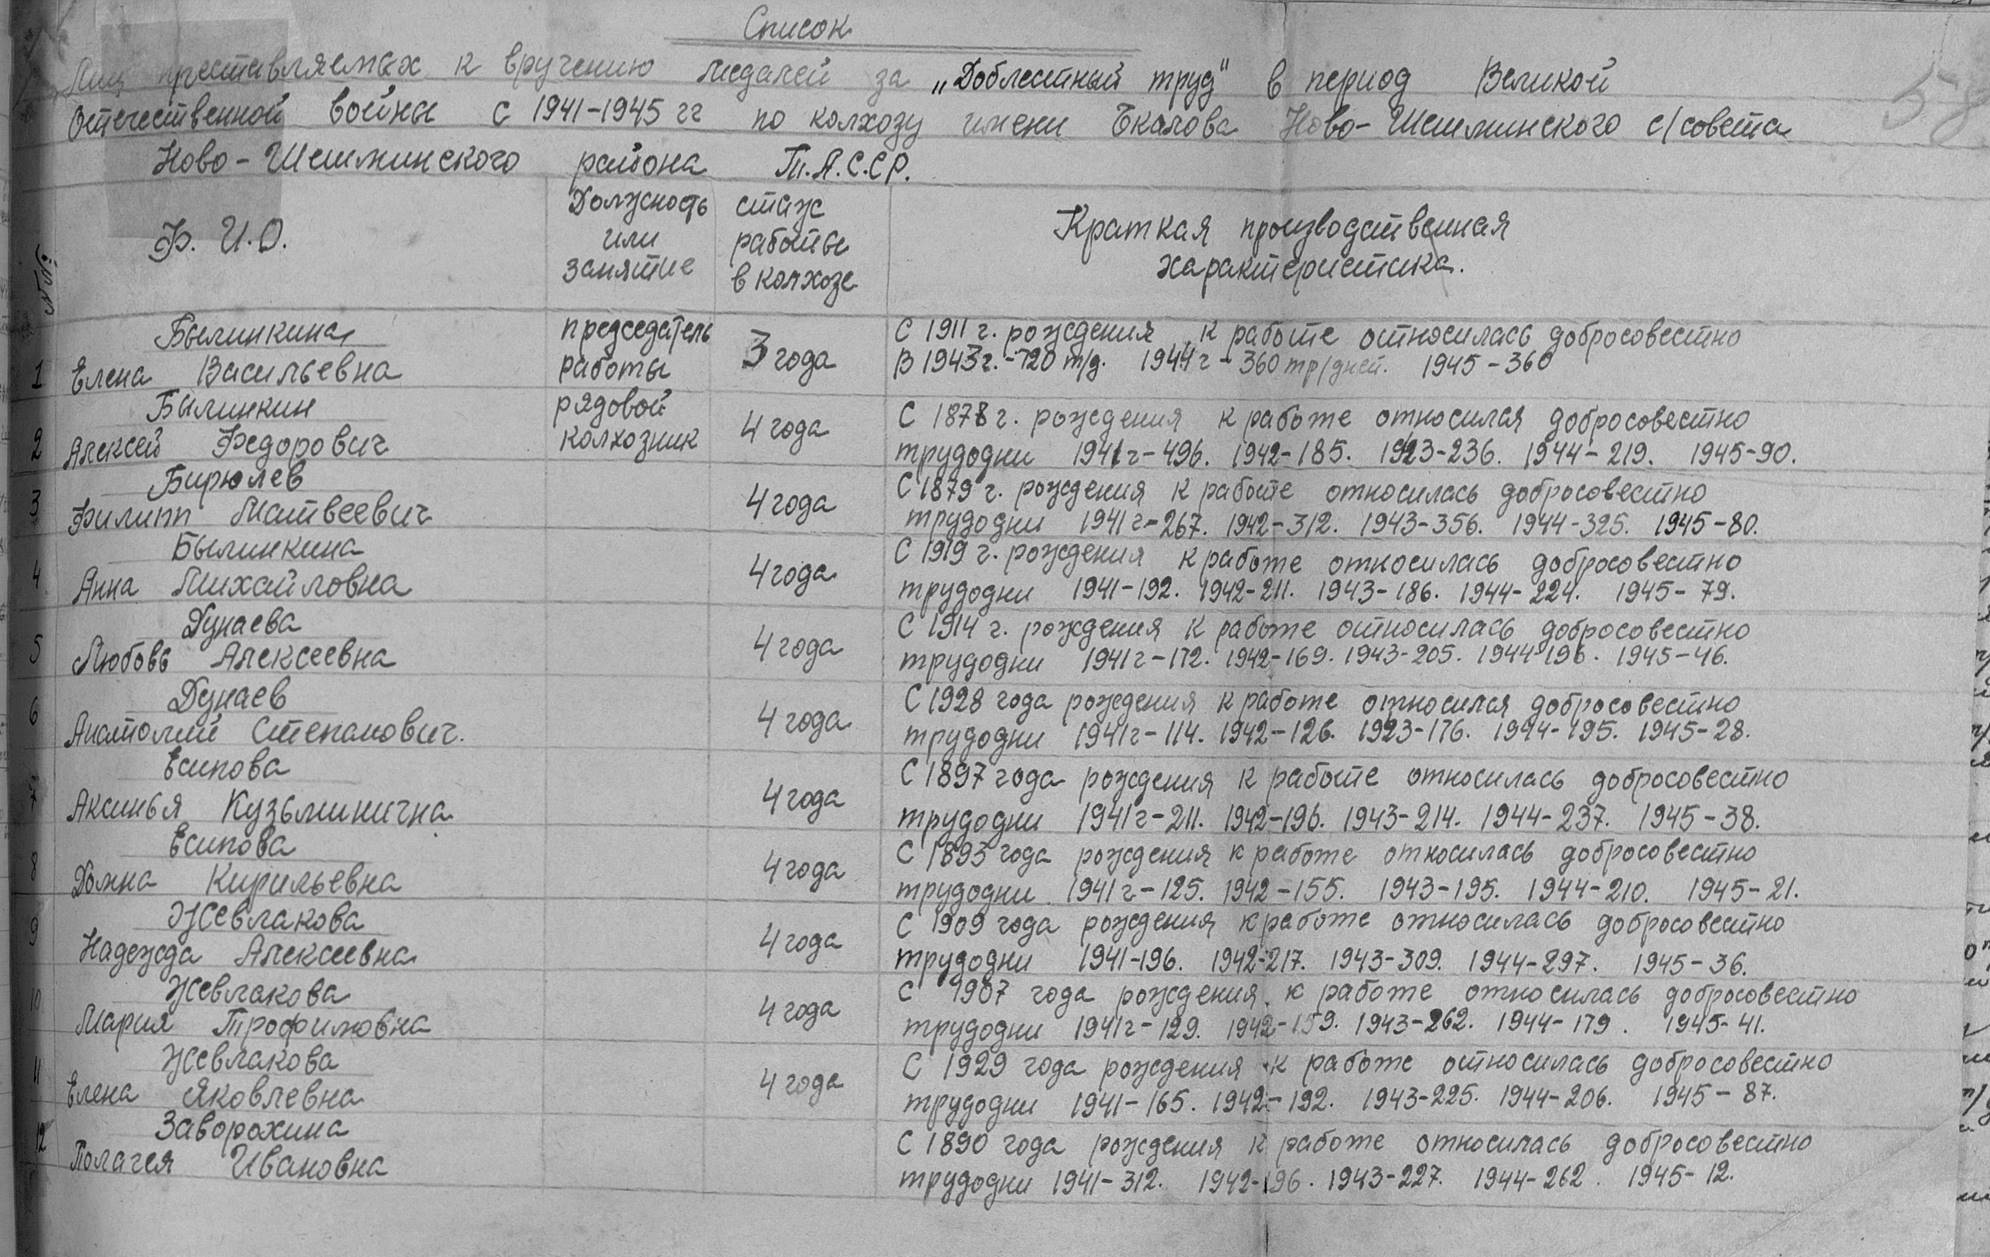 Список
Лиц преставляемых к вручению медалей за „Доблестный труд" в период Великой
Отечественной войны с 1941-1945 гг по колхозу имени Чкалова Ново-Шешминского с/совета
Ново-Шешминского района Т.А.С.СР.
58
Ф. И.О.
Должность или занятие
стаж работы в колхозе
Краткая производственная характеристика.
Былинкина
1 Елена Васильевна
председатель работы
3 года
С 1911 г. рождения к работе относилась добросовестно
В 1943г.-720 т/д. 1944г-360 тр/дней. 1945-360
Былинкин
2 Алексей Федорович
рядовой колхозник
4 года
С 1878г. рождения к работе относился добросовестно
трудодни 1941г-496. 1942-185. 1923-236. 1944-219. 1945-90.
Бирюлев
3 Филипп Матвеевич
4 года
С 1879 г. рождения к работе относилась добросовестно
трудодни 1941г-267. 1942-312. 1943-356. 1944-325. 1945-80.
Былинкина
4 Анна Михайловна
4 года
С 1919 г. рождения к работе относилась добросовестно
трудодни 1941-192. 1942-211. 1943-186. 1944-224. 1945-79.
Дунаева
5 Любовь Алексеевна
4 года
С 1914 г. рождения к работе относилась добросовестно
трудодни 1941г-172. 1942-169. 1943-205. 1944-196. 1945-46.
Дунаев
6 Анатолий Степанович.
4 года
С 1928 года рождения к работе относился добросовестно
трудодни 1941г-114. 1942-126. 1923-176. 1944-195. 1945-28.
Есипова
7 Аксинья Кузьминична
4 года
С 1897 года рождения к работе относилась добросовестно
трудодни 1941г-211. 1942-196. 1943-214. 1944-237. 1945-38.
Есипова
8 Домна Кирильевна
4 года
С 1893 года рождения к работе относилась добросовестно
трудодни 1941г-125. 1942-155. 1943-195. 1944-210. 1945-21.
Жевлакова
9 Надежда Алексеевна
4 года
С 1909 года рождения к работе относилась добросовестно
трудодни 1941-196. 1942-217. 1943-309. 1944-297. 1945-36.
Жевлакова
10 Мария Трофимовна
4 года
С 1907 года рождения к работе относилась добросовестно
трудодни 1941г-129. 1942-159. 1943-262. 1944-179. 1945-41.
Жевлакова
11 Елена Яковлевна
4 года
С 1929 года рождения к работе относилась добросовестно
трудодни 1941-165. 1942-192. 1943-225. 1944-206. 1945-87.
Заворохина
12 Полагея Ивановна
С 1890 года рождения к работе относилась добросовестно
трудодни 1941-312. 1942-196. 1943-227. 1944-262. 1945-12.